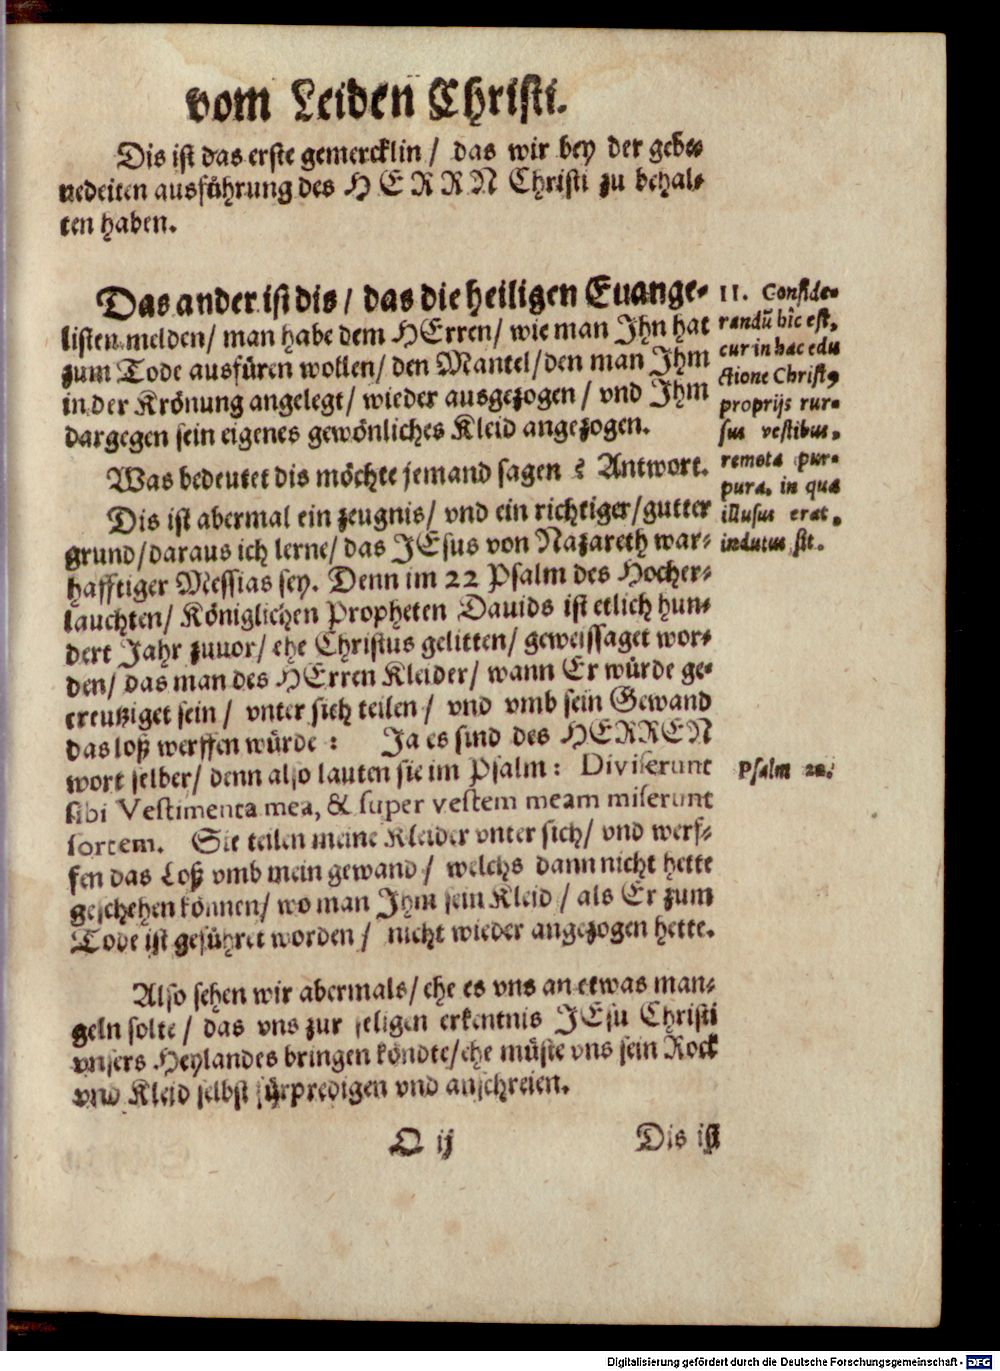 vom Leiden Christi.
Dis ist das erste gemercklin / das wir bey der gebe-
nedeiten ausführung des HERRN Christi zu behal-
ten haben.
Das ander ist dis / das die heiligen Euange-
listen melden / man habe dem HErren / wie man Ihn hat
zum Tode ausfüren wollen / den Mantel / den man Ihm
in der Krönung angelegt / wieder ausgezogen / vnd Ihm
dargegen sein eigenes gewönliches Kleid angezogen.
II. Conside-
randū hîc est,
cur in hac edu
ctione Christꝰ
proprijs rur-
sus vestibus,
remota pur-
pura, in qua
illusus erat,
indutus sit.
Was bedeutet dis möchte jemand sagen ? Antwort.
Dis ist abermal ein zeugnis / vnd ein richtiger / gutter
grund / daraus ich lerne / das JEsus von Nazareth war-
hafftiger Messias sey. Denn im 22 Psalm des Hocher-
lauchten / Königlichen Propheten Dauids ist etlich hun-
dert Jahr zuuor / ehe Christus gelitten / geweissaget wor-
den / das man des HErren Kleider / wann Er würde ge-
creutziget sein / vnter sich teilen / vnd vmb sein Gewand
das loß werffen würde : Ja es sind des HERREN
wort selber / denn also lauten sie im Psalm : Diviserunt
sibi Vestimenta mea, & super vestem meam miserunt
sortem. Sie teilen meine Kleider vnter sich / vnd werf-
fen das Loß vmb mein gewand / welchs dann nicht hette
geschehen können / wo man Ihm sein Kleid / als Er zum
Tode ist geführet worden / nicht wieder angezogen hette.
Psalm 22.
Also sehen wir abermals / ehe es vns an etwas man-
geln solte / das vns zur seligen erkentnis JEsu Christi
vnsers Heylandes bringen köndte / ehe müste vns sein Rock
vnd Kleid selbst fürpredigen vnd anschreien.
O ij
Dis ist
Digitalisierung gefördert durch die Deutsche Forschungsgemeinschaft - DFG